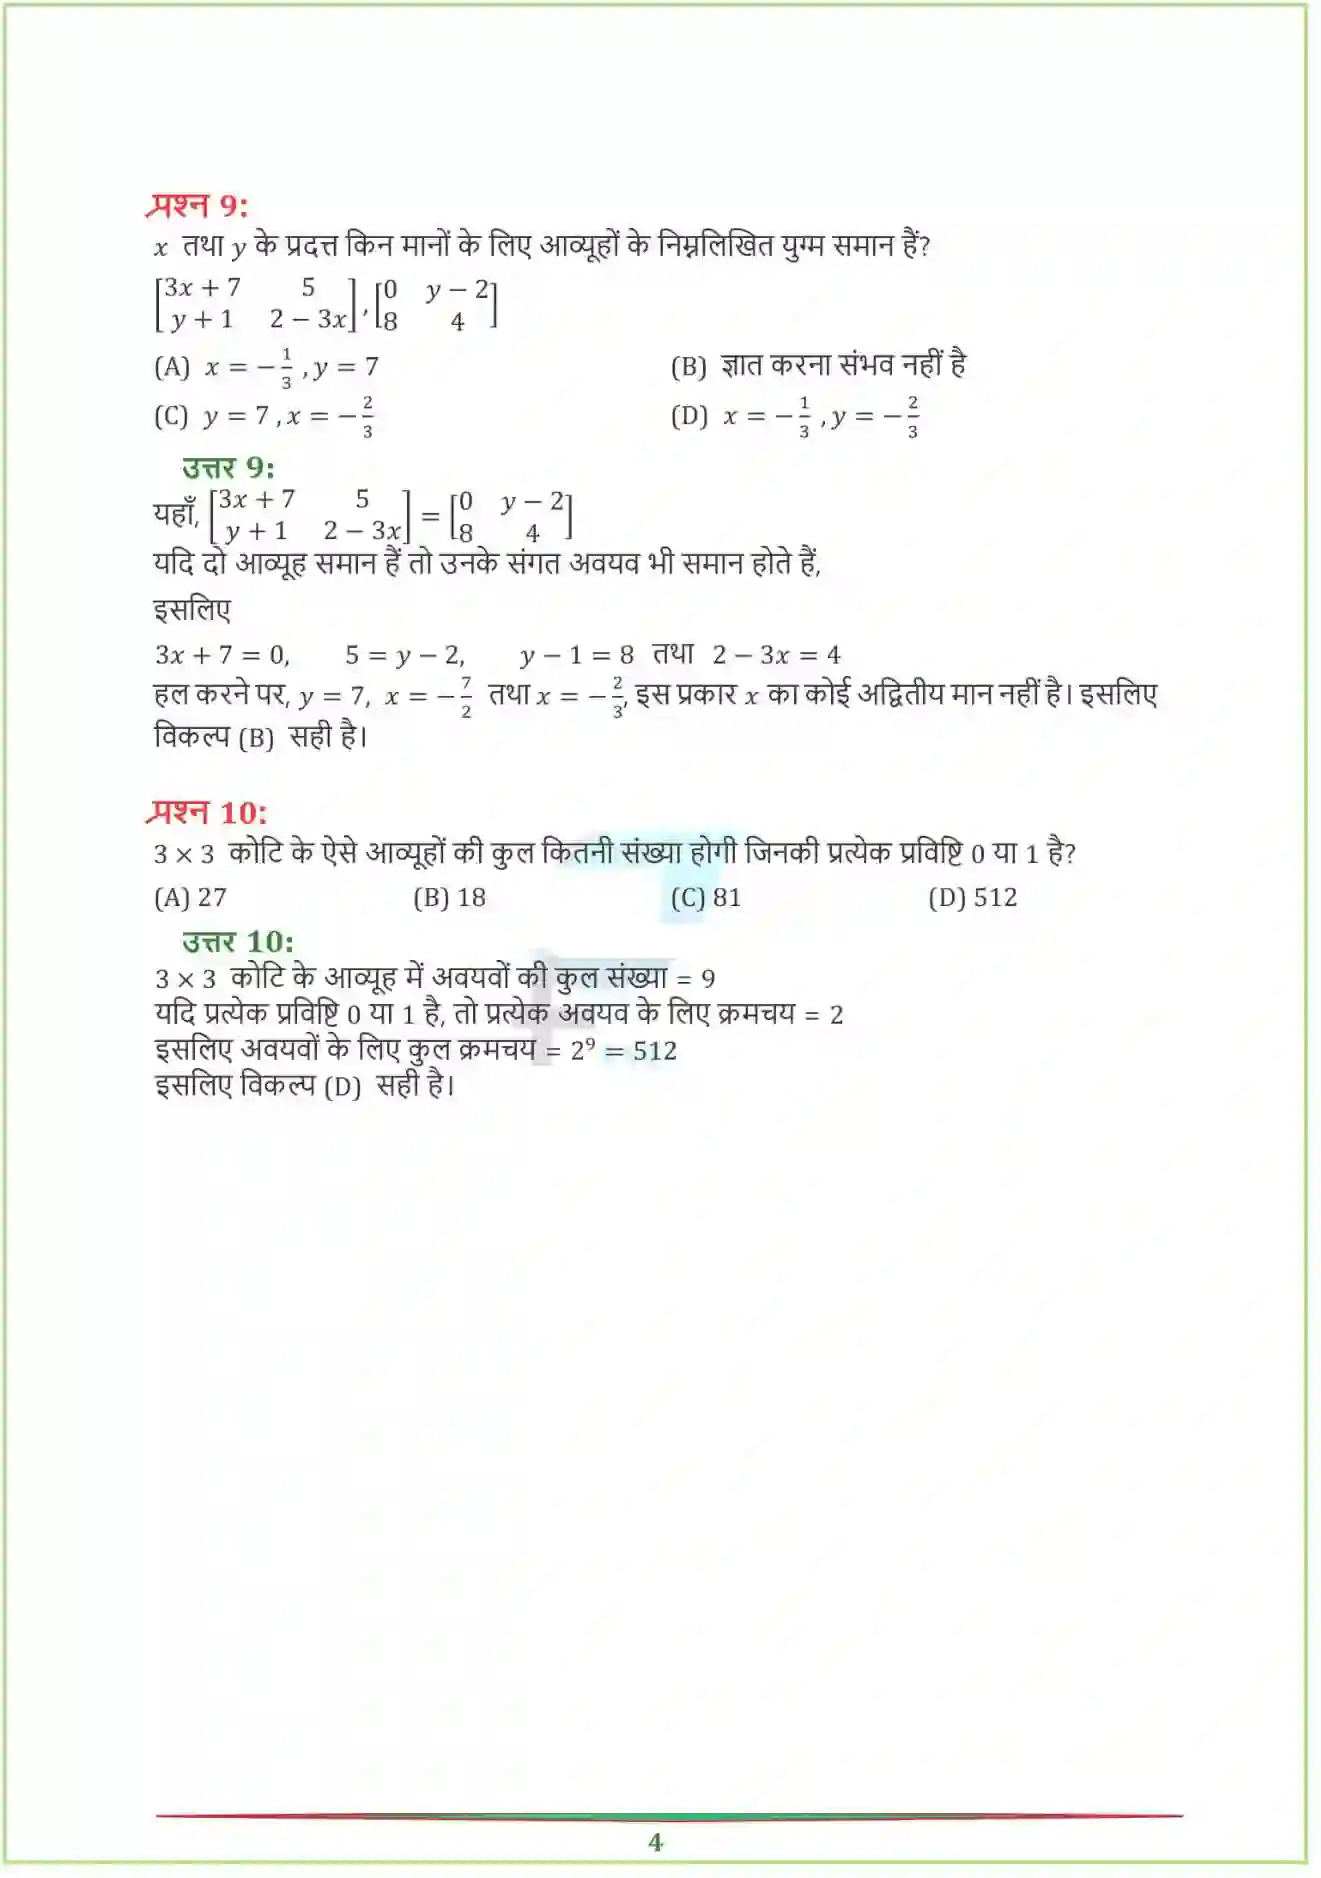 प्रश्न 9:
x तथा y के प्रदत्त किन मानों के लिए आव्यूहों के निम्नलिखित युग्म समान हैं?
[3x + 7 5; y + 1 2 − 3x], [0 y − 2; 8 4]
(A) x = −1/3 , y = 7 (B) ज्ञात करना संभव नहीं है
(C) y = 7 , x = −2/3 (D) x = −1/3 , y = −2/3
उत्तर 9:
यहाँ, [3x + 7 5; y + 1 2 − 3x] = [0 y − 2; 8 4]
यदि दो आव्यूह समान हैं तो उनके संगत अवयव भी समान होते हैं,
इसलिए
3x + 7 = 0, 5 = y − 2, y − 1 = 8 तथा 2 − 3x = 4
हल करने पर, y = 7, x = −7/2 तथा x = −2/3, इस प्रकार x का कोई अद्वितीय मान नहीं है। इसलिए
विकल्प (B) सही है।
प्रश्न 10:
3 × 3 कोटि के ऐसे आव्यूहों की कुल कितनी संख्या होगी जिनकी प्रत्येक प्रविष्टि 0 या 1 है?
(A) 27 (B) 18 (C) 81 (D) 512
उत्तर 10:
3 × 3 कोटि के आव्यूह में अवयवों की कुल संख्या = 9
यदि प्रत्येक प्रविष्टि 0 या 1 है, तो प्रत्येक अवयव के लिए क्रमचय = 2
इसलिए अवयवों के लिए कुल क्रमचय = 2⁹ = 512
इसलिए विकल्प (D) सही है।
4